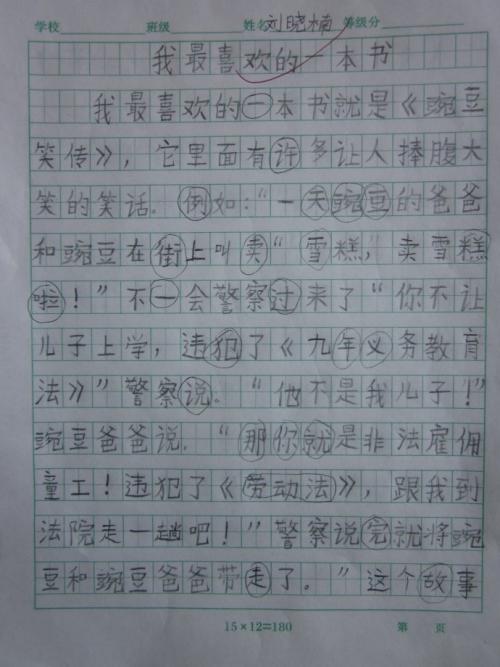 学校 班级 姓名 刘晓楠 等级分
我最喜欢的一本书
我最喜欢的一本书就是《豌豆
笑传》，它里面有许多让人捧腹大
笑的笑话。例如：“一天豌豆的爸爸
和豌豆在街上叫卖“雪糕，卖雪糕
啦！”不一会警察过来了“你不让
儿子上学，违犯了《九年义务教育
法》”警察说.“他不是我儿子！”
豌豆爸爸说.“那你就是非法雇佣
童工！违犯了《劳动法》，跟我到
法院走一趟吧！”警察说完就将豌
豆和豌豆爸爸带走了。”这个故事
15×12=180 第 页